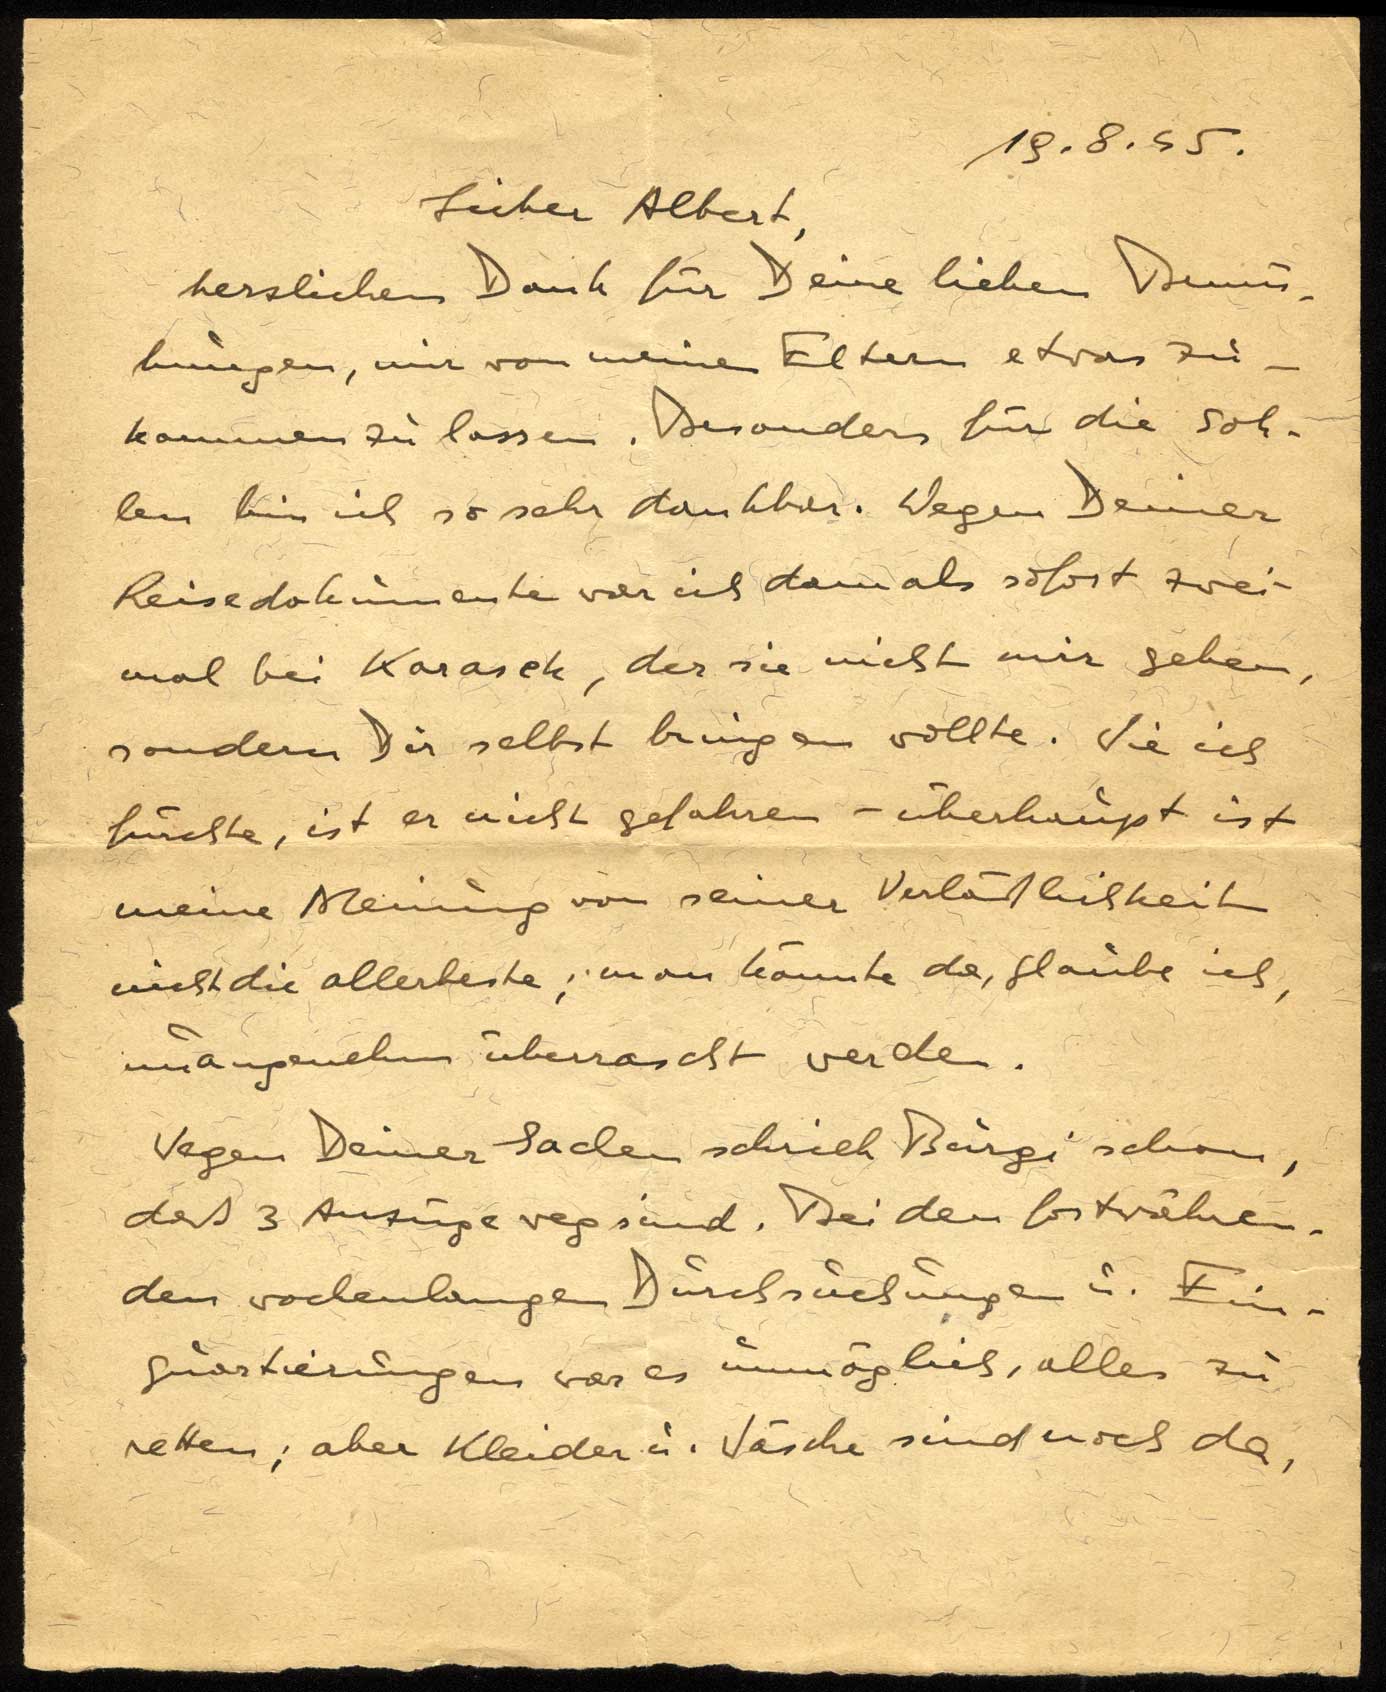 19.8.45.
Lieber Albert,
herzlichen Dank für Deine lieben Bemü-
hungen, mir von meinen Eltern etwas zu-
kommen zu lassen. Besonders für die Soh-
len bin ich so sehr dankbar. Wegen Deiner
Reisedokumente war ich damals sofort zwei-
mal bei Karasek, der sie nicht mir geben,
sondern Dir selbst bringen wollte. Wie ich
fürchte, ist er nicht gefahren – überhaupt ist
meine Meinung von seiner Verläßlichkeit
nicht die allerbeste; man könnte da, glaube ich,
unangenehm überrascht werden.
Wegen Deiner Sachen schrieb Burgi schon,
daß 3 Anzüge weg sind. Bei den fortwähren-
den wochenlangen Durchsuchungen u. Ein-
quartierungen war es unmöglich, alles zu
retten; aber Kleider u. Wäsche sind noch da,